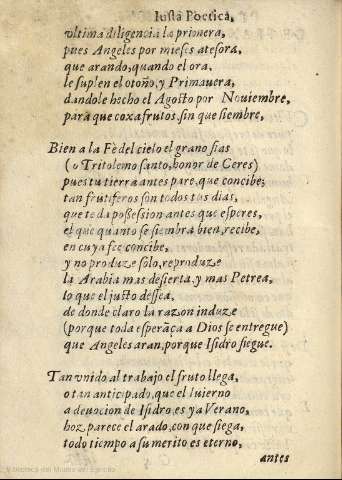 Iusta Poetica,
vltima diligencia la primera,
pues Angeles por mieses atesora,
que arando, quando el ora,
le suplen el otoño, y Primauera,
dandole hecho el Agosto por Nouiembre,
para que coxa frutos. sin que siembre,
Bien a la Fè del cielo el grano fias
(o Tritolemo santo, honor de Ceres)
pues tu tierra antes pare, que concibe;
tan frutiferos son todos tus dias,
que te da possession antes que esperes,
el que quanto se siembra bien, recibe,
en cuya fee concibe,
y no produze solo, reproduze
la Arabia mas desierta, y mas Petrea,
lo que el justo dessea,
de donde claro la razon induze
(porque toda esperãça a Dios se entregue)
que Angeles aran, porque Isidro siegue.
Tan vnido al trabajo el fruto llega,
o tan anticipado, que el Iuierno
a deuocion de Isidro, es ya Verano,
hoz, parece el arado, con que siega,
todo tiempo a su merito es eterno,
antes
Biblioteca del Museo del Ejército